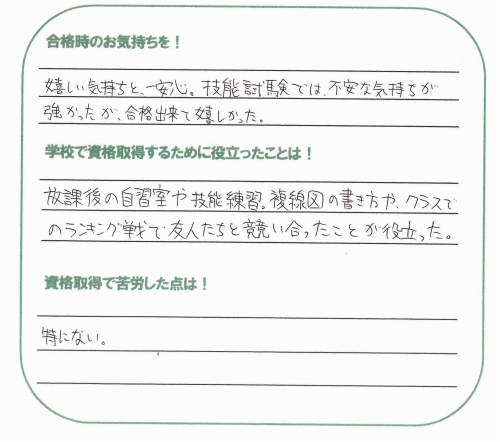 合格時のお気持ちを！
嬉しい気持ちと、一安心。技能試験では、不安な気持ちが
強かったが、合格出来て嬉しかった。
学校で資格取得するために役立ったことは！
放課後の自習室や技能練習。複線図の書き方や、クラスで
のランキング戦で友人たちと競い合ったことが役立った。
資格取得で苦労した点は！
特にない。